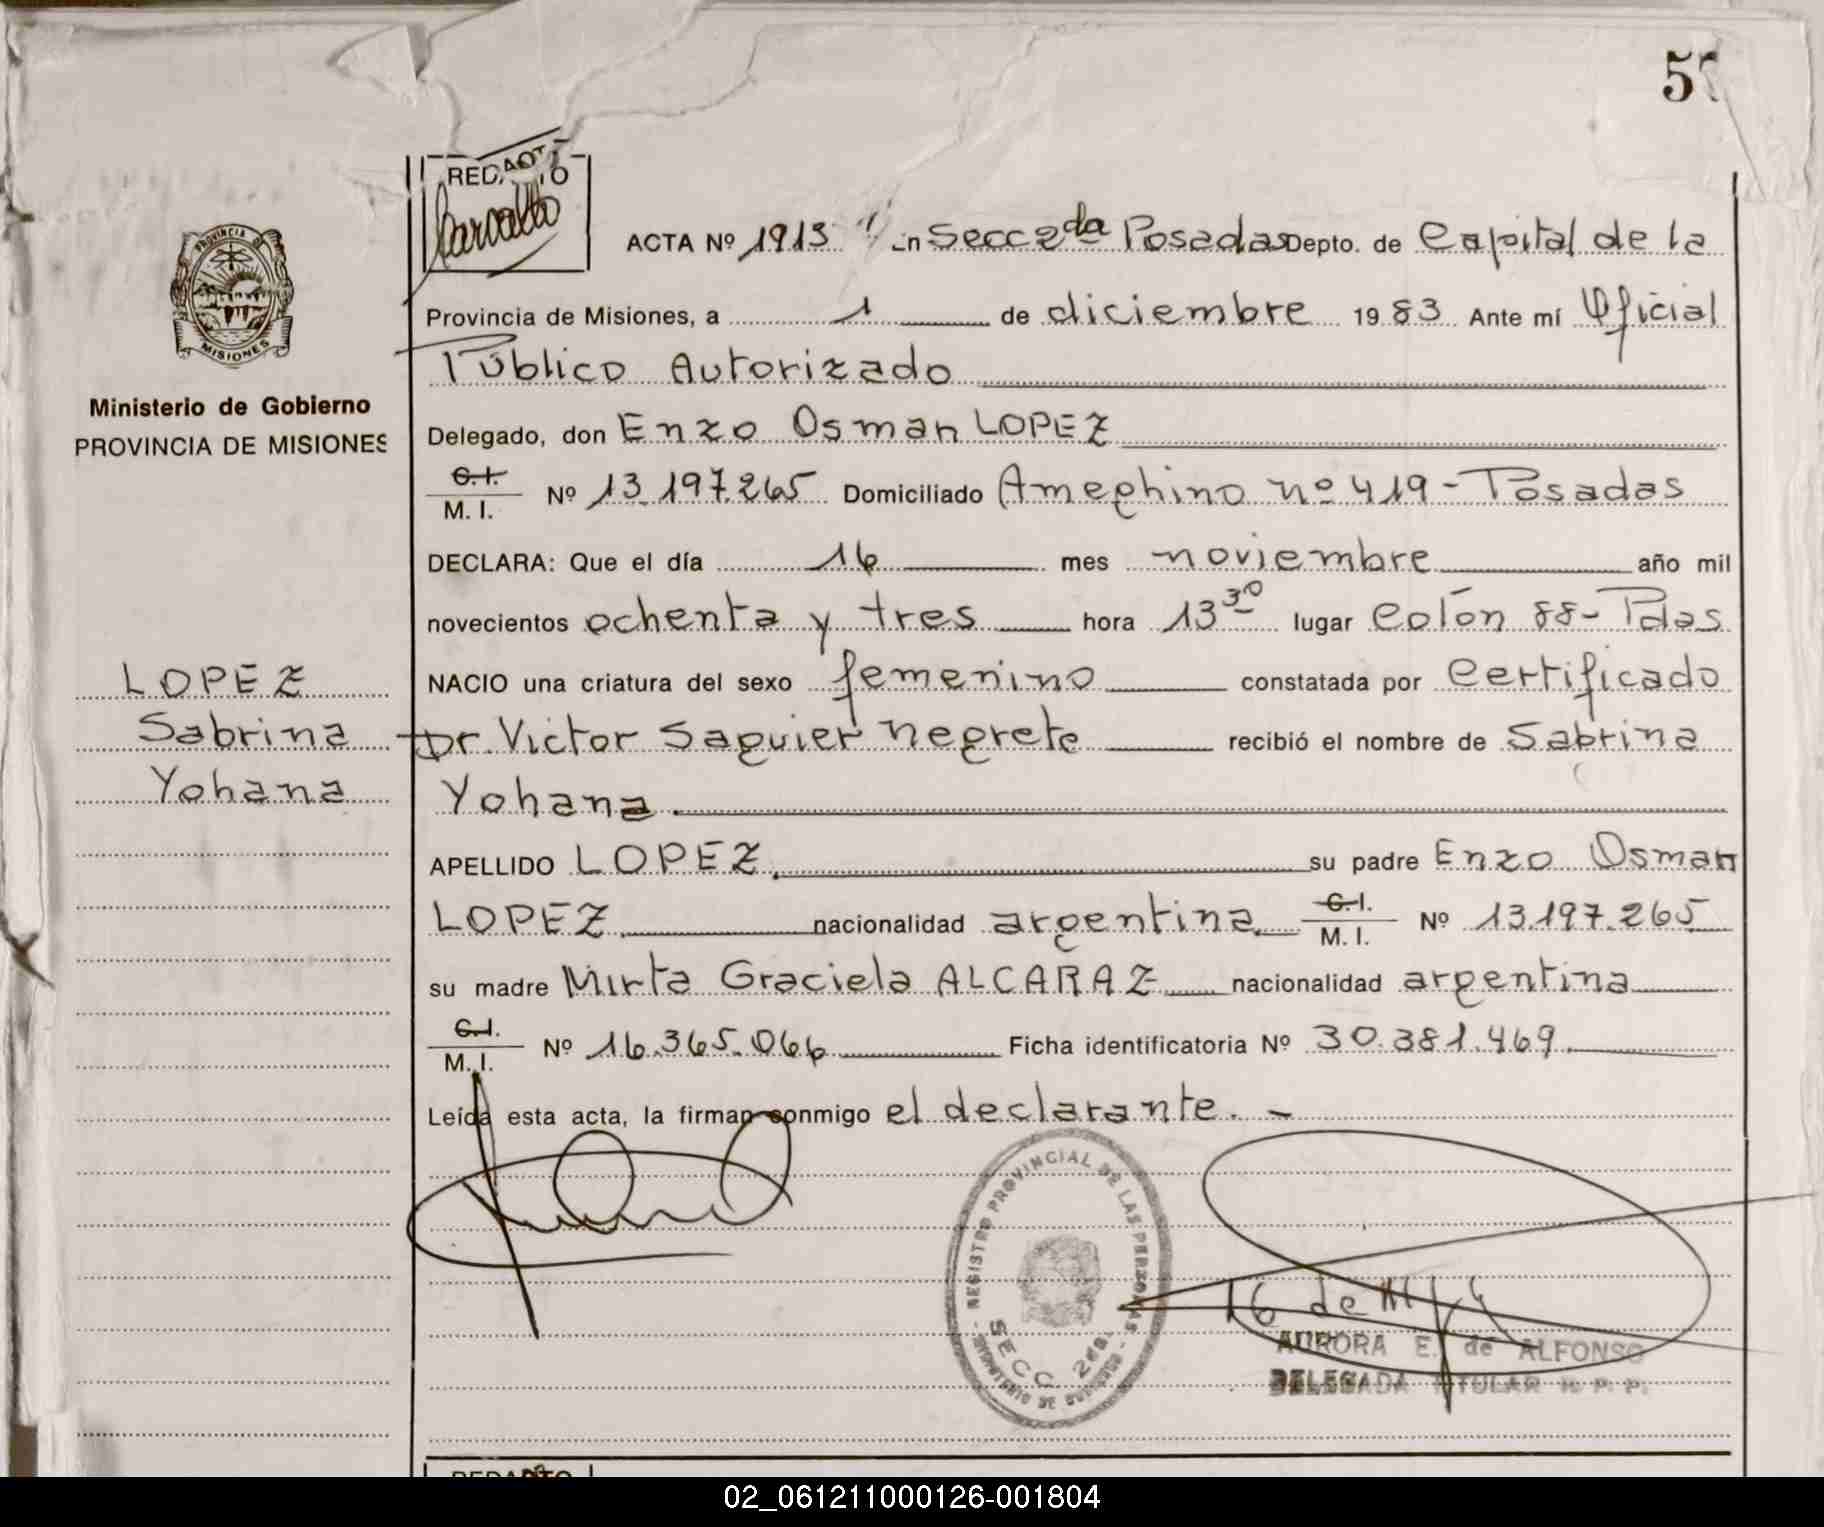 57
REDACTO
Carvallo
ACTA Nº 1913 En Secc 2da Posadas Depto. de Capital de la
Provincia de Misiones, a 1 de diciembre 1983 Ante mí Oficial
Público Autorizado
Delegado, don Enzo Osman LOPEZ
C.I.
M. I. Nº 13.197.265 Domiciliado Ameghino nº 419 - Posadas
DECLARA: Que el día 16 mes noviembre año mil
novecientos ochenta y tres hora 13 30 lugar Colón 88 - Pdas
NACIO una criatura del sexo femenino constatada por Certificado
Dr. Victor Saguier Negrete recibió el nombre de Sabrina
Yohana
APELLIDO LOPEZ su padre Enzo Osman
LOPEZ nacionalidad argentina C.I.
M. I. Nº 13.197.265
su madre Mirta Graciela ALCARAZ nacionalidad argentina
C.I.
M. I. Nº 16.365.066 Ficha identificatoria Nº 30.381.469
Leída esta acta, la firman conmigo el declarante. -
PROVINCIA DE
MISIONES
Ministerio de Gobierno
PROVINCIA DE MISIONES
LOPEZ
Sabrina
Yohana
REGISTRO PROVINCIAL DE LAS PERSONAS
SECC. 2da.
MINISTERIO DE GOBIERNO
16 de
AURORA E. de ALFONSO
DELEGADA TITULAR R. P. P.
REDACTO
02_061211000126-001804